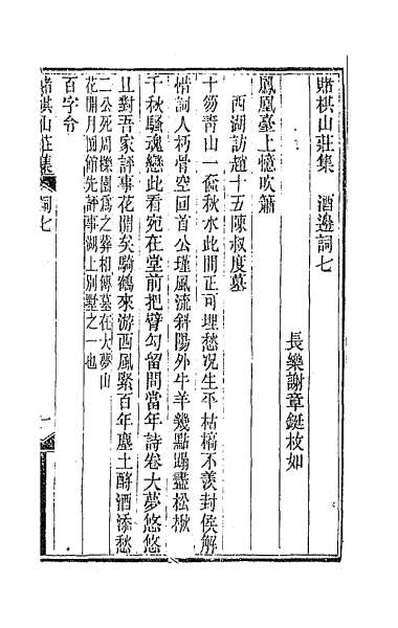 賭棋山莊集 酒邊詞七
長樂謝章鋌枚如
鳳凰臺上憶吹簫
西湖訪趙十五陳叔度墓
十笏靑山一奩秋水此間正可埋愁况生平枯槁不羨封侯解
惜詞人朽骨空回首公瑾風流斜陽外牛羊幾點蹋盡松楸
千秋騷魂戀此看宛在堂前把臂勾留問當年詩卷大夢悠悠
且對吾家評事花開矣騎鶴來游西風緊百年塵土酹酒添愁
二公死周櫟園爲之葬相傳墓在大夢山
花開月圓館先評事湖上別墅之一也
百字令
賭棋山莊集 詞七 一